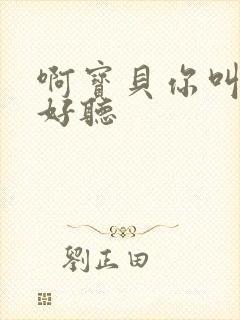 啊寶貝你叫
好聽
劉正田